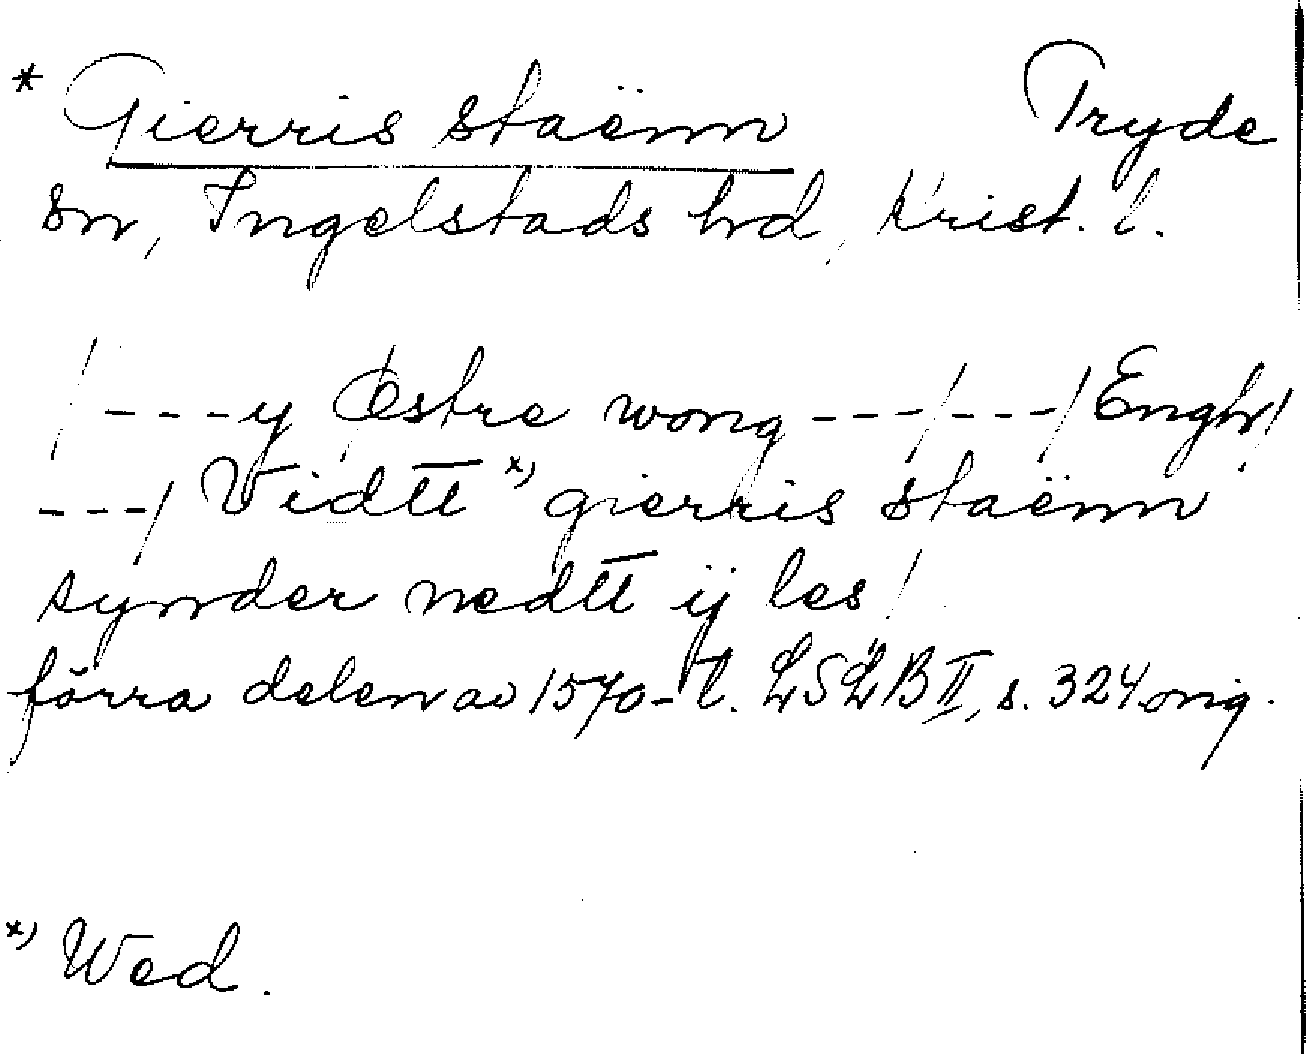 * Gierris staënn Tryde
sn, Ingelstads hrd, Krist. l.
/---y Østre wong ---/---/ Engh/
---/ Vidtt *) gierris staënn
synder nedtt ij les /
förra delen av 1570-t. LSLB II, s. 324 orig.
*) Wed.